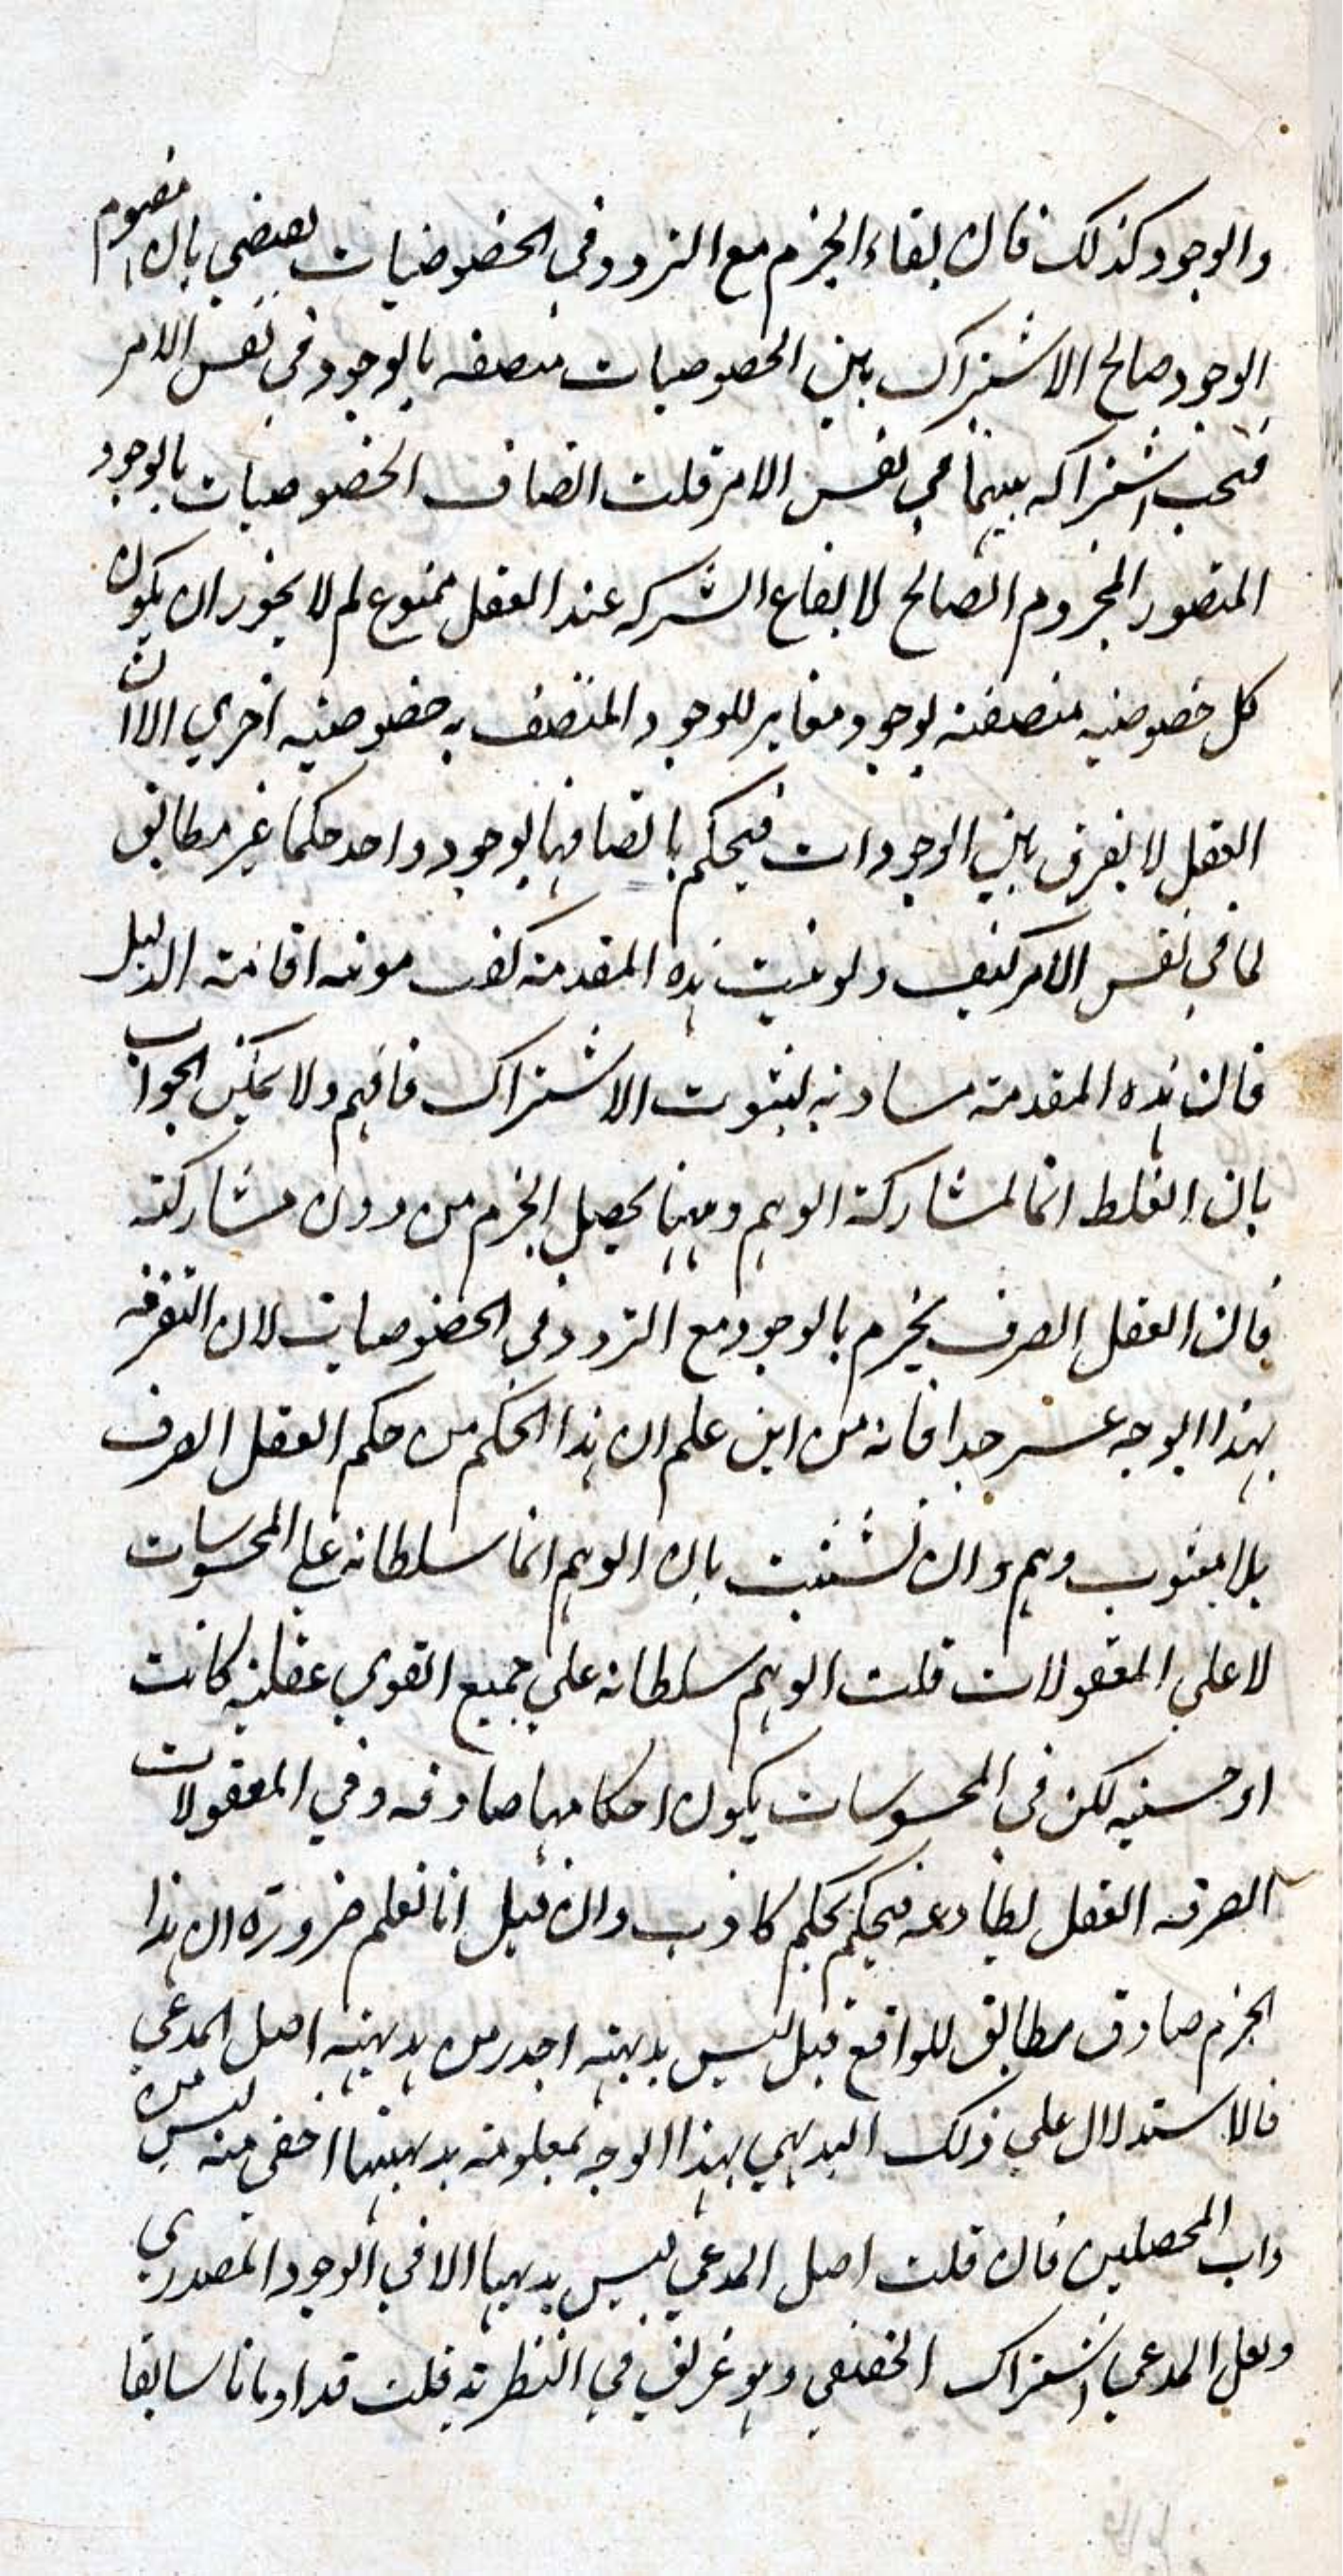 والوجود كذلك فان بقاء الجزم مع التردد في الخصوصيات يقتضي بان مفهوم
الوجود صالح الاشتراك بين الخصوصيات متصفه بالوجود في نفس الامر
فيجب اشتراكه بينها في نفس الامر قلت اتصاف الخصوصيات بالوجود
المتصور المجزوم الصالح لايقاع الشركه عند العقل ممنوع لم لا يجوز ان يكون
كل خصوصيه متصفة بوجود مغاير للوجود المتصف به خصوصيه اخري الا ان
العقل لا يفرق بين الوجودات فيحكم باتصافها بوجود واحد حكما غير مطابق
لما في نفس الامر كيف ولو تمت هذه المقدمة كفت مونه اقامة الدليل
فان هذه المقدمة مساويه لثبوت الاشتراك فافهم ولا يمكن الجواب
بان الغلط انما لمشاركة الوهم وههنا يحصل الجزم من دون مشاركته
فان العقل الصرف يجزم بالوجود مع التردد في الخصوصيات لان التفرقه
بهذا الوجه عسر جدا فانه من اين علم ان هذا الحكم من حكم العقل الصرف
بلا شوب وهم وان تشبثت بان الوهم انما سلطانه علي المحسوسات
لا علي المعقولات قلت الوهم سلطانه علي جميع القوي عقليه كانت
او حسيه لكن في المحسوسات يكون احكامها صادقه وفي المعقولات
الصرفه العقل يطاوعه فيحكم بحكم كاذب وان قيل انا نعلم ضرورة ان هذا
الجزم صادق مطابق للواقع قيل ليس بديهته اجدر من بديهيه اصل المدعي
فالاستدلال علي ذلك البديهي بهذا الوجه بمعلومة بديهيتها اخفي منه ليس من
داب المحصلين فان قلت اصل المدعي ليس بديهيا الا في الوجود المصدري
ولعل المدعي اشتراك الحقيقي وهو غريق في النظريه قلت قد اومانا سابقا